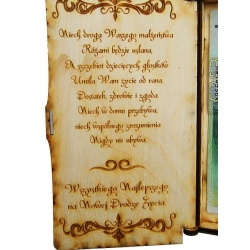 Niech droga Waszego małżeństwa
Różami będzie usłana,
A szczebiot dziecięcych głosików
Umila Wam życie od rana.
Dostatek, zdrowie i zgoda
Niech w domu przebywa,
niech wspólnego zrozumienia
Nigdy nie ubywa.
Wszystkiego Najlepszego
na Nowej Drodze Życia.